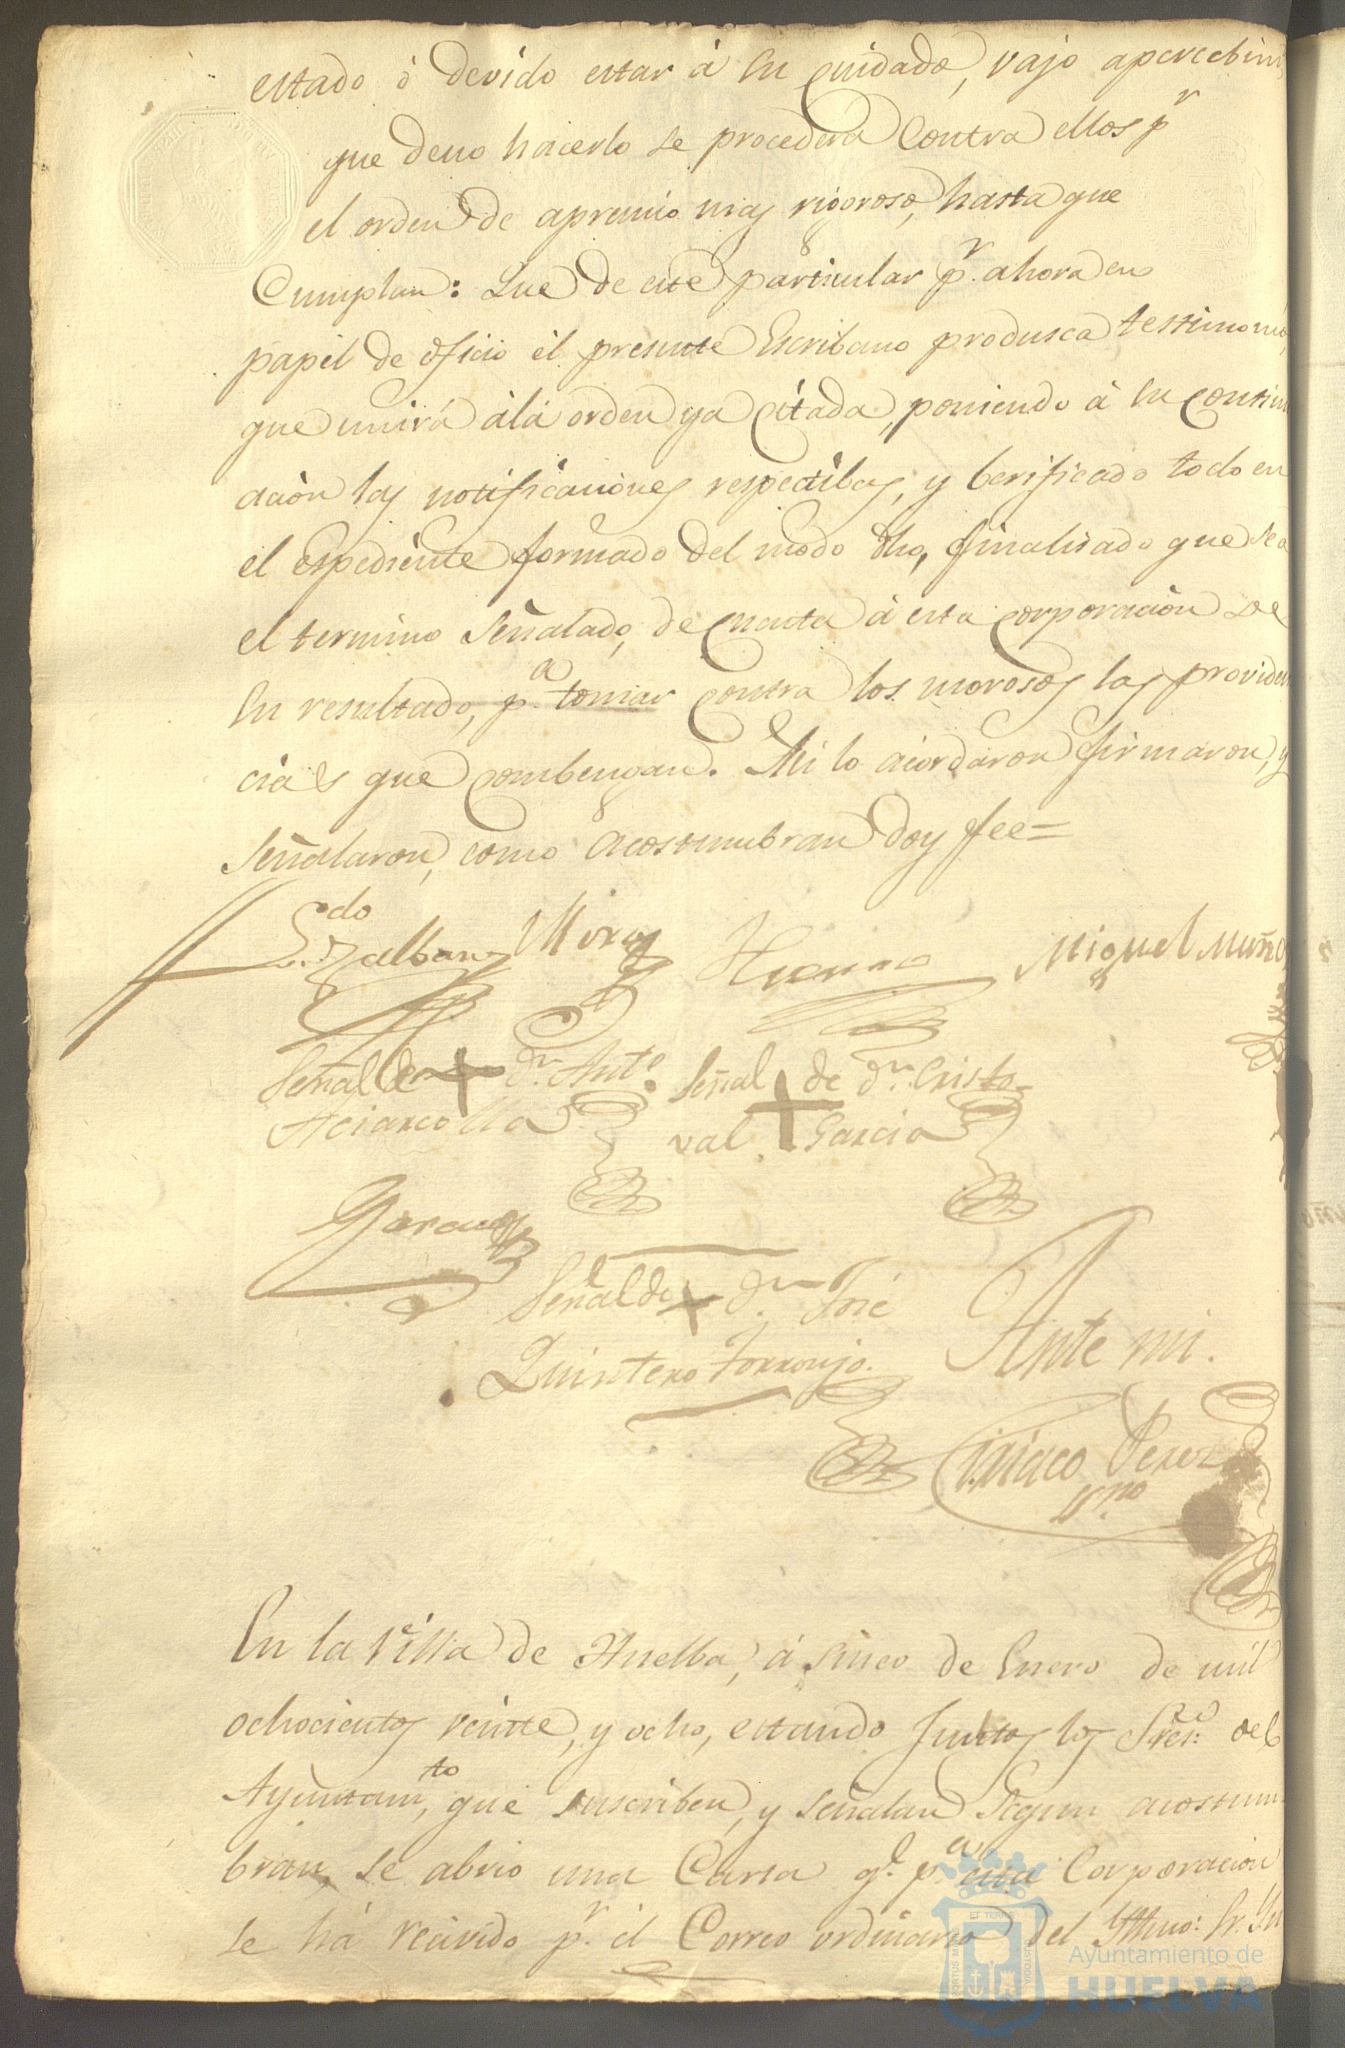 estado ó devido estar á su cuidado, vajo apercebim
que deno hacerlo se procederá contra ellos pr
el orden de apremio mas rigoroso, hasta que
Cumplan: Que de este particular pr. ahora en
papel de oficio el presente Escribano produsca testimonio,
que unirá álá orden ya citada, poniendo á su continu
ación las notificaciones respectibas, y berificado todo en
el espediente formado del modo dho, finalisado que sea
el termino señalado, de cuenta á esta corporación de
su resultado, pa. tomar contra los morosos las providen
cias que combengan. Asi lo acordaron firmaron, y
señalaron, como acostumbran doy fee=
Ldo
Miguel Muño
Señal de + dn. Anto.
Señal + de dn. Cristo
val. Garcia
Señal de + dn. José
Quintero Torronjo.
Ante mi.
Ciriaco Perez
En la Villa de Huelba, á sinco de Enero de mil
ochocientos veinte, y ocho, estando Juntos los Sres. del
Ayuntamto, que suscriben, y señalan segun acostum
bran, se abrio una Carta ql. pa. esta Corporacion
se há recivido pr. el Correo ordinario del Yltmo: Sr. Yn
Ayuntamiento de
HUELVA